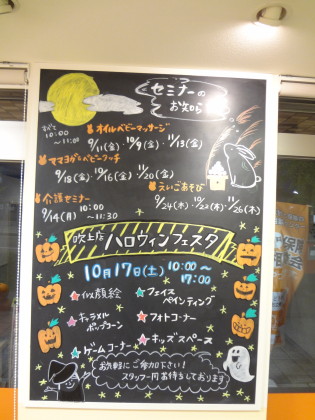 セミナーの
お知らせ
すべて
10:00
~11:00
オイルベビーマッサージ
9/11(金)・10/9(金)・11/13(金)
ママヨガ&ベビータッチ
9/18(金)・10/16(金)・11/20(金)
えいごあそび
9/24(木)・10/22(木)・11/26(木)
介護セミナー
9/14(月) 10:00
~11:30
吹上店 ハロウィンフェスタ
10月17日(土) 10:00~
17:00
似顔絵
フェイス
ペインティング
キャラメル
ポップコーン
フォトコーナー
ゲームコーナー
キッズスペース
お気軽にご参加下さい!
スタッフ一同お待ちしております